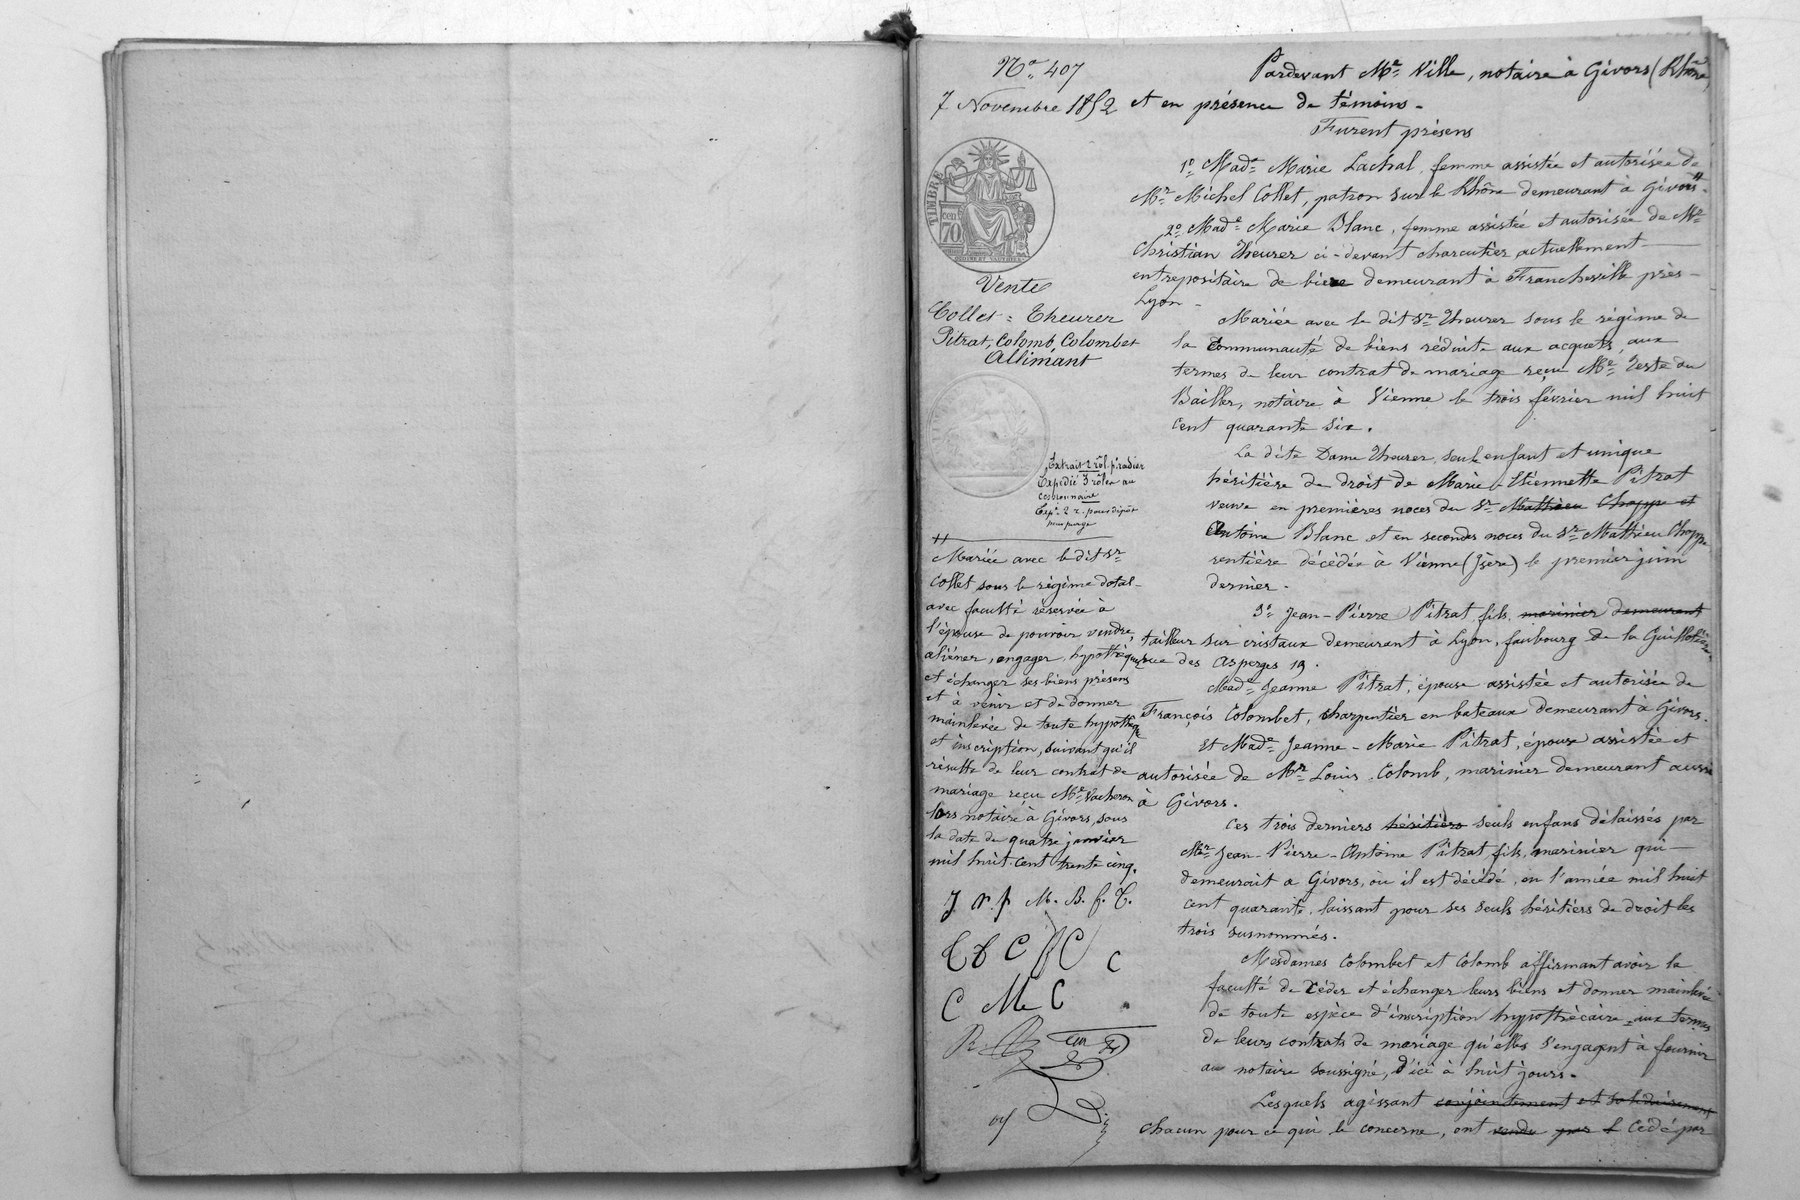 No 407
7 Novembre 1852
TIMBRE
70
cen
Vente
Collet = Theurer
Pitrat, Colomb, Colombet
Allimant
Extrait 2 rôl.
Expédié 3 rôles au
Exp. 2 r. pour dépôt
pour purge
Mariée avec le dit Sr
Collet sous le régime dotal
avec faculté réservée à
l'épouse de pouvoir vendre,
aliéner, engager, hypothéquer
et échanger ses biens présens
et à venir et de donner
mainlevée de toute hypothèque
et inscription, suivant qu'il
résulte de leur contrat de
mariage reçu Me Vacheron
lors notaire à Givors, sous
la date de quatre janvier
mil huit cent trente cinq.
M. B. f. T.
C
C M C
Pardevant Me Ville, notaire à Givors (Rhône)
et en présence de témoins.
Furent présens
1o Made Marie Lachal, femme assistée et autorisée de
Mr Michel Collet, patron sur le Rhône demeurant à Givors #.
2o Made Marie Blanc, femme assistée et autorisée de Mr
Christian Theurer ci-devant charcutier actuellement
entrepositaire de bière demeurant à Francheville près
Lyon.
Mariée avec le dit Sr Theurer sous le régime de
la communauté de biens réduite aux acquets, aux
termes de leur contrat de mariage reçu Me Teste du
Bailler, notaire à Vienne le trois février mil huit
cent quarante six.
La dite Dame Theurer, seule enfant et unique
héritière de droit de Marie-Etiennette Pitrat
veuve en premières noces du Sr Mathieu Chappe et
Antoine Blanc et en secondes noces du Sr Mathieu Chappe
rentière décédée à Vienne (Isère) le premier juin
dernier.
3o Jean-Pierre Pitrat fils, marinier demeurant
tailleur sur cristaux demeurant à Lyon, faubourg de la Guillotière
rue des Asperges 19.
Made Jeanne Pitrat, épouse assistée et autorisée de
François Colombet, charpentier en bateaux demeurant à Givors.
Et Made Jeanne-Marie Pitrat, épouse assistée et
autorisée de Mr Louis Colomb, marinier demeurant aussi
à Givors.
Ces trois derniers héritiers seuls enfans délaissés par
Mr Jean-Pierre-Antoine Pitrat fils, marinier qui
demeurait a Givors, où il est décédé, en l'année mil huit
cent quarante, laissant pour ses seuls héritiers de droit les
trois susnommés.
Mesdames Colombet et Colomb affirmant avoir la
faculté de céder et échanger leurs biens et donner mainlevée
de toute espèce d'inscription hypothécaire aux termes
de leurs contrats de mariage qu'elles s'engagent à fournir
au notaire soussigné, d'ici à huit jours.
Lesquels agissant conjointement et solidairement
chacun pour ce qui le concerne, ont vendu par le cédé par